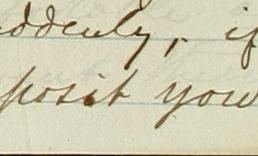 uddenly, if
posit you